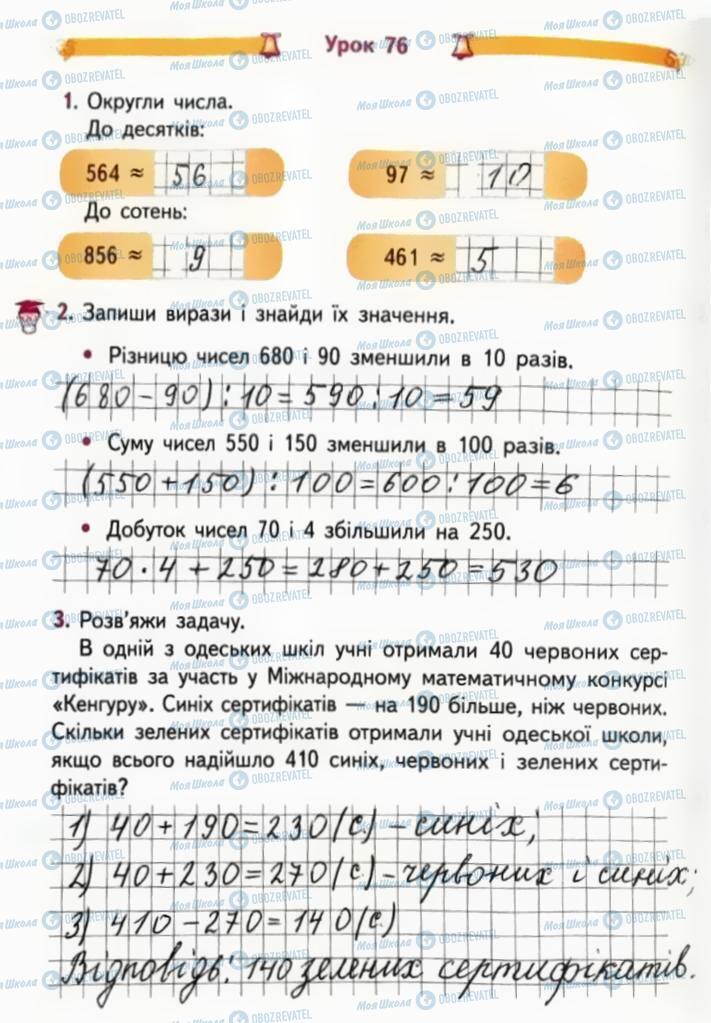 Урок 76
1. Округли числа.
До десятків:
564 ≈ 56
97 ≈ 10
До сотень:
856 ≈ 9
461 ≈ 5
2. Запиши вирази і знайди їх значення.
• Різницю чисел 680 і 90 зменшили в 10 разів.
(680-90):10=590:10=59
• Суму чисел 550 і 150 зменшили в 100 разів.
(550+150):100=600:100=6
• Добуток чисел 70 і 4 збільшили на 250.
70·4+250=280+250=530
3. Розв'яжи задачу.
В одній з одеських шкіл учні отримали 40 червоних сер-
тифікатів за участь у Міжнародному математичному конкурсі
«Кенгуру». Синіх сертифікатів — на 190 більше, ніж червоних.
Скільки зелених сертифікатів отримали учні одеської школи,
якщо всього надійшло 410 синіх, червоних і зелених серти-
фікатів?
1) 40+190=230(с)-синіх;
2) 40+230=270(с)-червоних і синіх;
3) 410-270=140(с)
Відповідь: 140 зелених сертифікатів.